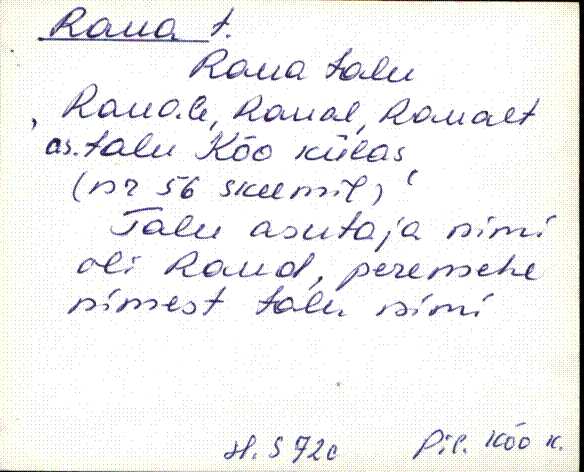 Raua t.
Raua talu
Rauale, Raual, Raualt
as. talu Kõo külas,
(nr 56 skeemil)
Talu asutaja nimi
oli Raud, peremehe
nimest talu nimi
H. S 72c Pil. Kõo k.